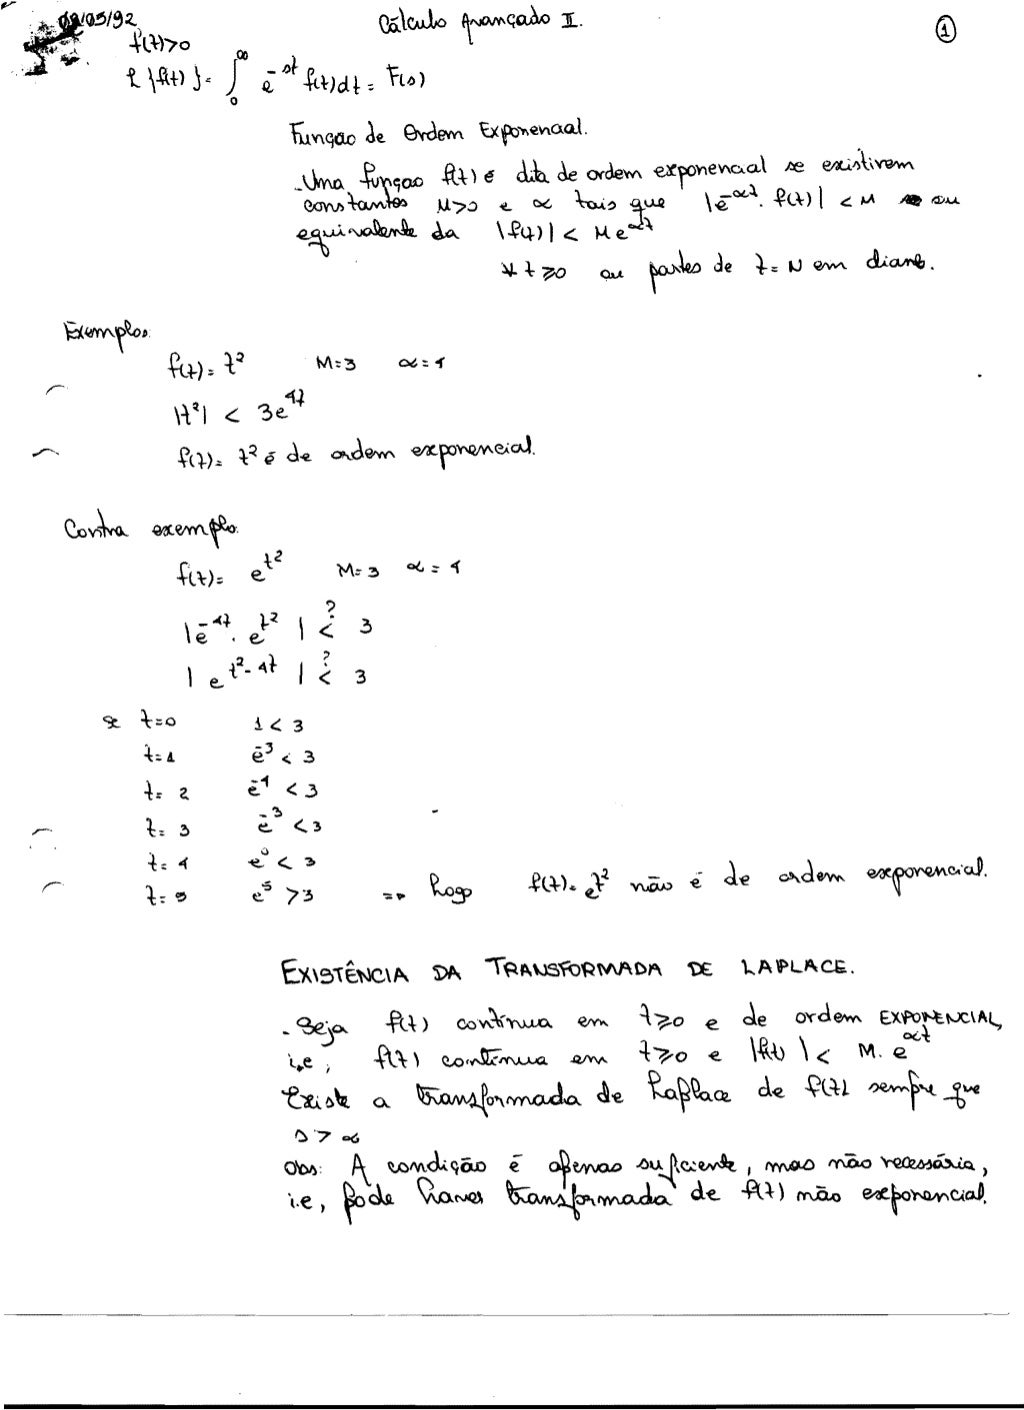 08/05/92 Cálculo Avançado II. 1
f(t)>0
L{f(t)}= ∫₀^∞ e^-st f(t)dt = F(s)
Função de Ordem Exponencial.
- Uma função f(t) é dita de ordem exponencial se existirem
constantes M>0 e α tais que |e^-αt. f(t)| < M ou
equivalente da |f(t)| < Me^αt
∀ t ≥0 ou partes de t=N em diante.
Exemplos
f(t)= t² M=3 α=4
|t²| < 3e^4t
f(t)= t² é de ordem exponencial.
Contra exemplo.
f(t)= e^t² M=3 α=4
|e^-4t. e^t² | <? 3
| e^t²-4t | <? 3
se t=0 1 < 3
t=1 e^-3 < 3
t= 2 e^-4 < 3
t= 3 e^-3 < 3
t= 4 e^0 < 3
t= 5 e^5 > 3 => Logo f(t)= e^t² não é de ordem exponencial.
EXISTÊNCIA DA TRANSFORMADA DE LAPLACE.
- Seja f(t) contínua em t≥0 e de ordem EXPONENCIAL,
i,e, f(t) contínua em t≥0 e |f(t)| < M. e^αt
Existe a transformada de Laplace de f(t) sempre que
s > α
Obs: A condição é apenas suficiente, mas não necessária,
i.e, pode haver transformada de f(t) não exponencial.